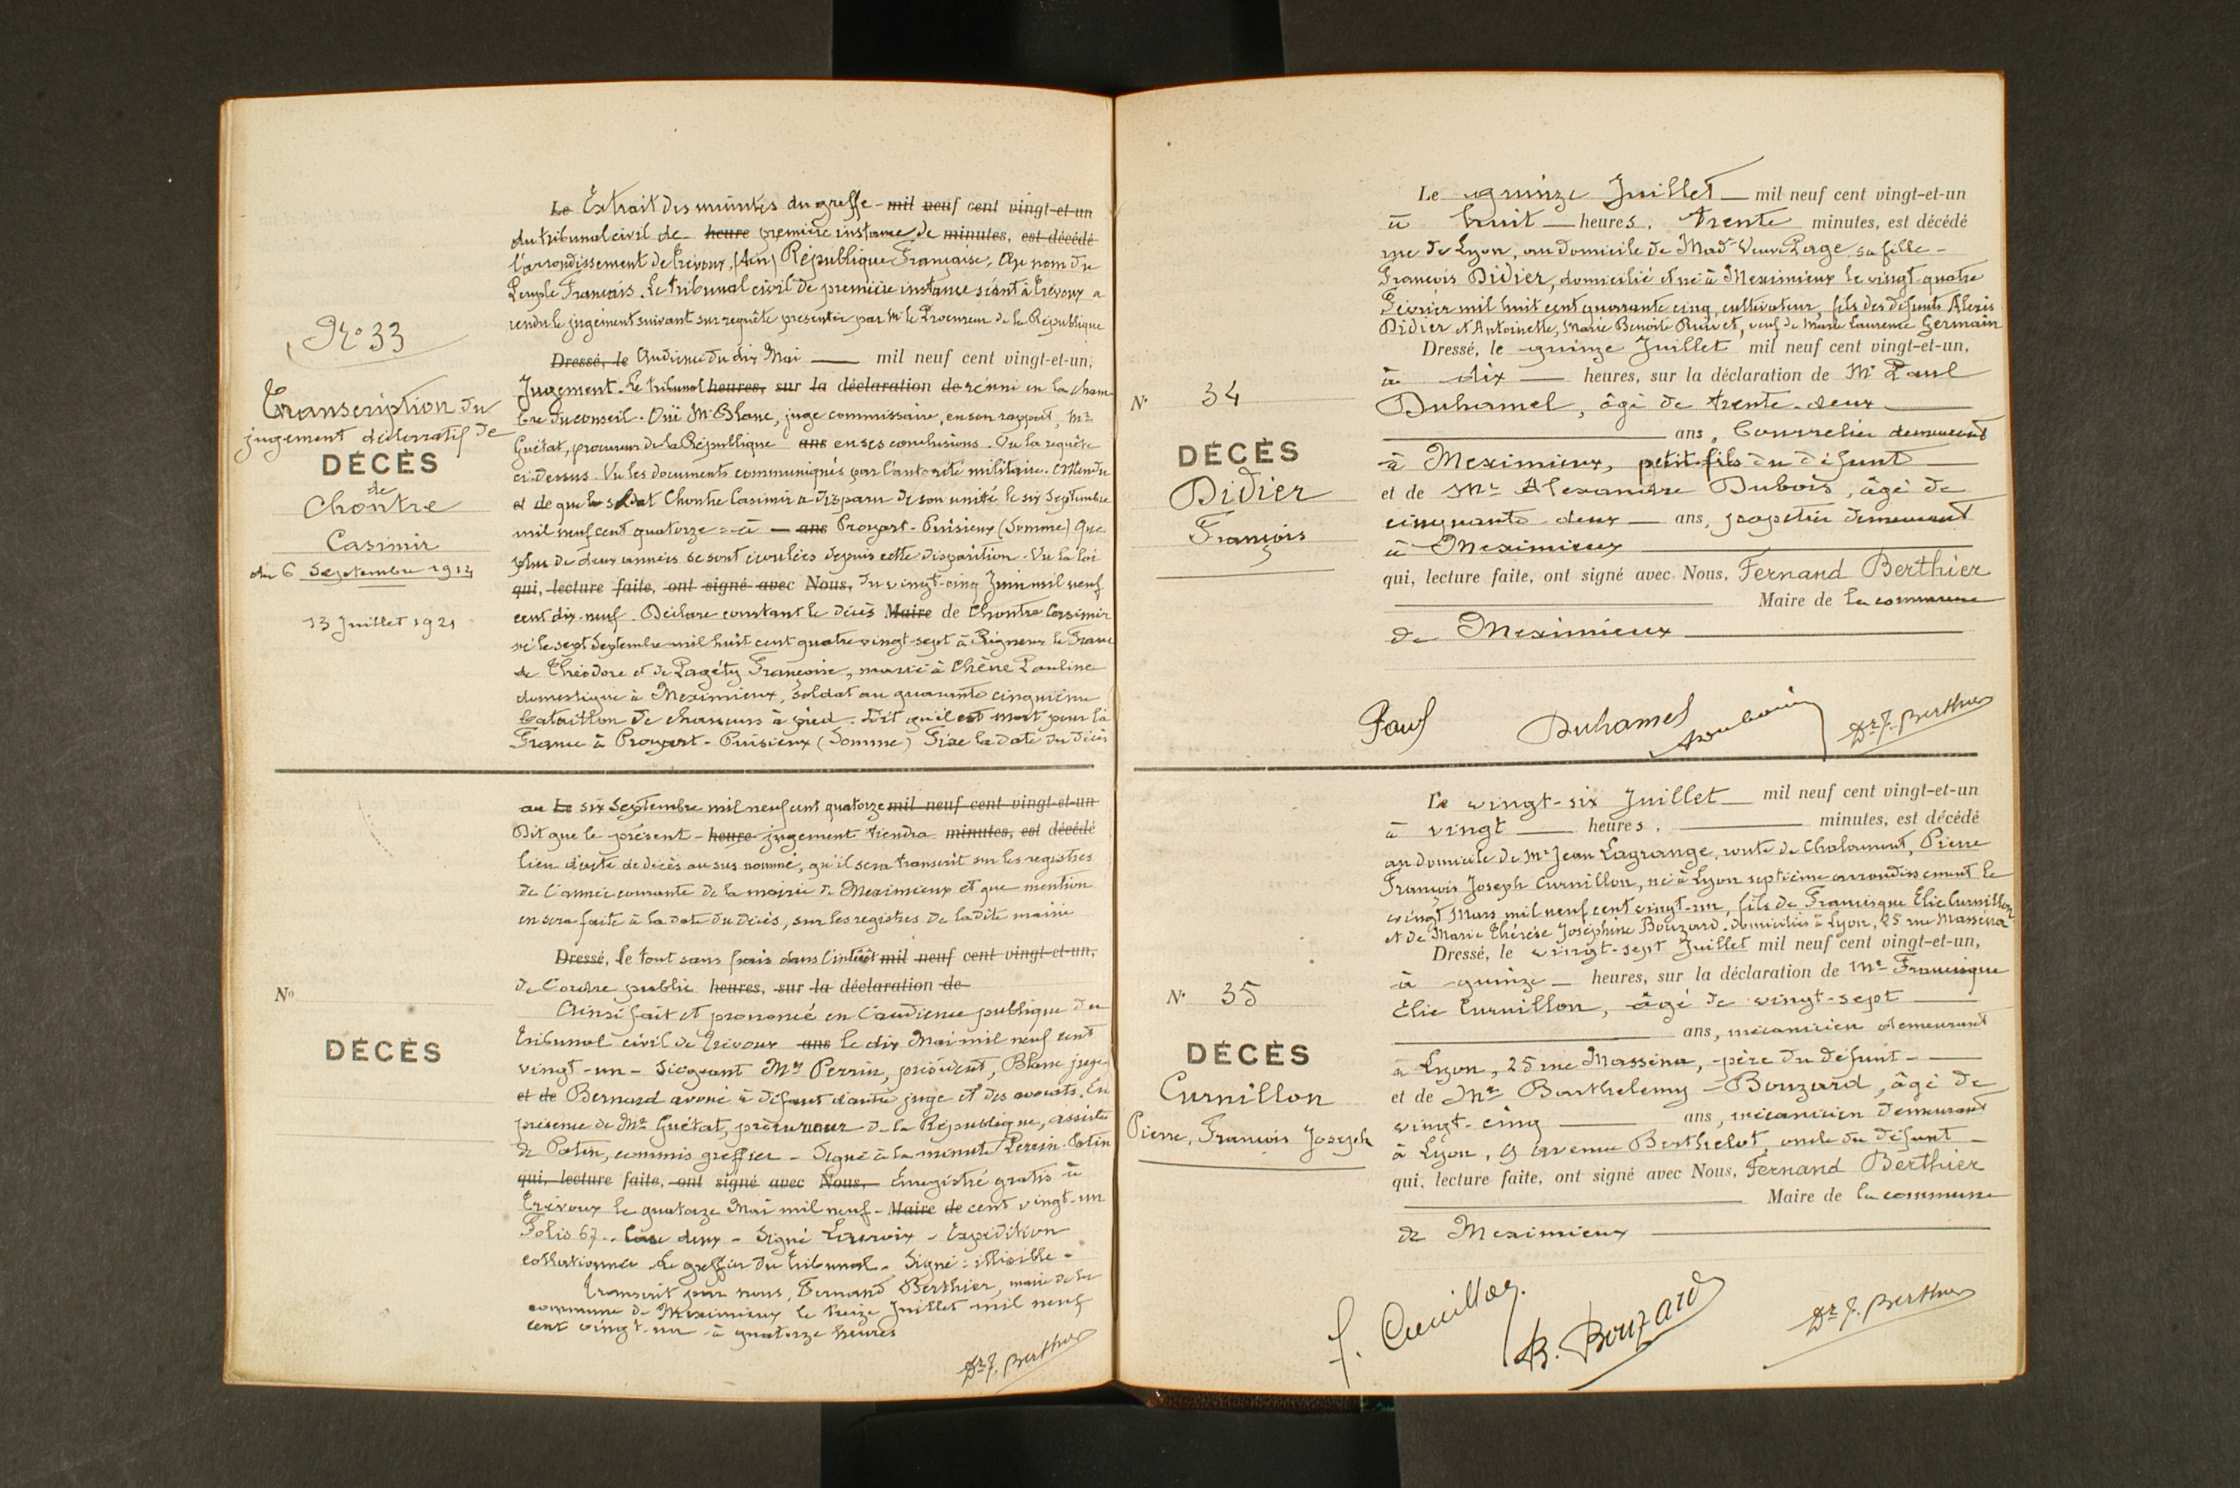 N° 33
Transcription du
jugement déclaratif de
DÉCÈS
de
Chontre
Casimir
du 6 Septembre 1914
13 Juillet 1921
Le Extrait des minutes du greffe - mil neuf cent vingt-et-un
du tribunal civil de heure première instance de minutes, est décédé
l'arrondissement de Trévoux, (Ain) République Française. Au nom du
Peuple Français. Le tribunal civil de première instance séant à Trévoux a
rendu le jugement suivant sur requête présentée par Mr le Procureur de la République
Dressé, le Audience du dix Mai — mil neuf cent vingt-et-un,
Jugement. Le tribunal heures, sur la déclaration de réuni en la cham
bre du conseil. Ouï Mr Blanc, juge commissaire, en son rapport, Mr
Guétat, procureur de la République ans en ses conclusions. Vu la requête
ci-dessus. Vu les documents communiqués par l'autorité militaire. Attendu
et de que le soldat Chontre Casimir a disparu de son unité le six Septembre
mil neuf cent quatorze = à — ans Proyart-Puisieux (Somme) Que
plus de deux années se sont écoulées depuis cette disparition. Vu la loi
qui, lecture faite, ont signé avec Nous, du vingt-cinq Juin mil neuf
cent dix-neuf. Déclare constant le décès Maire de Chontre Casimir
né le sept Septembre mil huit cent quatre vingt-sept à Rigneux le Franc
de Théodore et de Pagéty Françoise, marié à Chêne Pauline
domestique à Meximieux, soldat au quarante cinquième
bataillon de chasseurs à pied. Dit qu'il est mort pour la
France à Proyart-Puisieux (Somme) Fixe la date du décès
au Le six Septembre mil neuf cent quatorze mil neuf cent vingt-et-un
Dit que le présent - heure jugement tiendra minutes, est décédé
lieu d'acte de décès au sus nommé, qu'il sera transcrit sur les registres
de l'année courante de la mairie de Meximieux et que mention
en sera faite à la date du décès, sur les registres de la dite mairie
Dressé, le tout sans frais dans l'intérêt mil neuf cent vingt-et-un,
de l'ordre public heures, sur la déclaration de
N°
DÉCÈS
Ainsi fait et prononcé en l'audience publique du
tribunal civil de Trévoux ans le dix Mai mil neuf cent
vingt-un - Siégeant Mrs Perrin, président, Blanc juge
et de Bernard avoué à défaut d'autre juge et des avocats. En
présence de Mr Guétat, procureur de la République, assisté
de Potin, commis greffier - Signé à la minute Perrin. Potin
qui, lecture faite, ont signé avec Nous, Enregistré gratis à
Trévoux le quatorze Mai mil neuf - Maire de cent vingt-un
Folio 67 - Case deux - Signé Lacroix - Expédition
collationnée Le greffier du tribunal. Signé : illisible -
Transcrit par nous, Fernand Berthier, maire de la
commune de Meximieux le treize Juillet mil neuf
cent vingt-un à quatorze heures
Dr F. Berthier
Le quinze Juillet — mil neuf cent vingt-et-un
à huit — heures, trente minutes, est décédé
rue de Lyon, au domicile de Made Veuve Page sa fille -
François Didier, domicilié et né à Meximieux le vingt quatre
Février mil huit cent quarante cinq, cultivateur, fils des défunts Alexis
Didier et Antoinette, Marie Benoite Ruivet, veuf de Marie Laurence Germain
Dressé, le quinze Juillet mil neuf cent vingt-et-un,
à dix — heures, sur la déclaration de Mr Paul
N° 34
Duhamel, âgé de trente-deux
ans, bourrelier demeurant
DÉCÈS
Didier
François
à Meximieux, petit-fils du défunt
et de Mr Alexandre Dubois, âgé de
cinquante-deux — ans, papetier demeurant
à Meximieux
qui, lecture faite, ont signé avec Nous, Fernand Berthier
Maire de la commune
de Meximieux
Paul Duhamel Dr F. Berthier
Le vingt-six Juillet — mil neuf cent vingt-et-un
à vingt — heures, — minutes, est décédé
au domicile de Mr Jean Lagrange, route de Chalamont, Pierre
François Joseph Curnillon, né à Lyon septième arrondissement le
vingt Mars mil neuf cent vingt-un, fils de Francisque Elie Curnillon
et de Marie Thérèse Joséphine Bouzard. domiciliés à Lyon, 25 rue Masséna
Dressé, le vingt-sept Juillet mil neuf cent vingt-et-un,
à quinze — heures, sur la déclaration de Mr Francisque
N° 35
Elie Curnillon, âgé de vingt-sept
ans, mécanicien demeurant
DÉCÈS
Curnillon
Pierre, François Joseph
à Lyon, 25 rue Masséna, père du défunt -
et de Mr Barthelemy Bouzard, âgé de
vingt-cinq — ans, mécanicien demeurant
à Lyon, 9 avenue Berthelot, oncle du défunt -
qui, lecture faite, ont signé avec Nous, Fernand Berthier
Maire de la commune
de Meximieux
B. Bouzard Dr F. Berthier